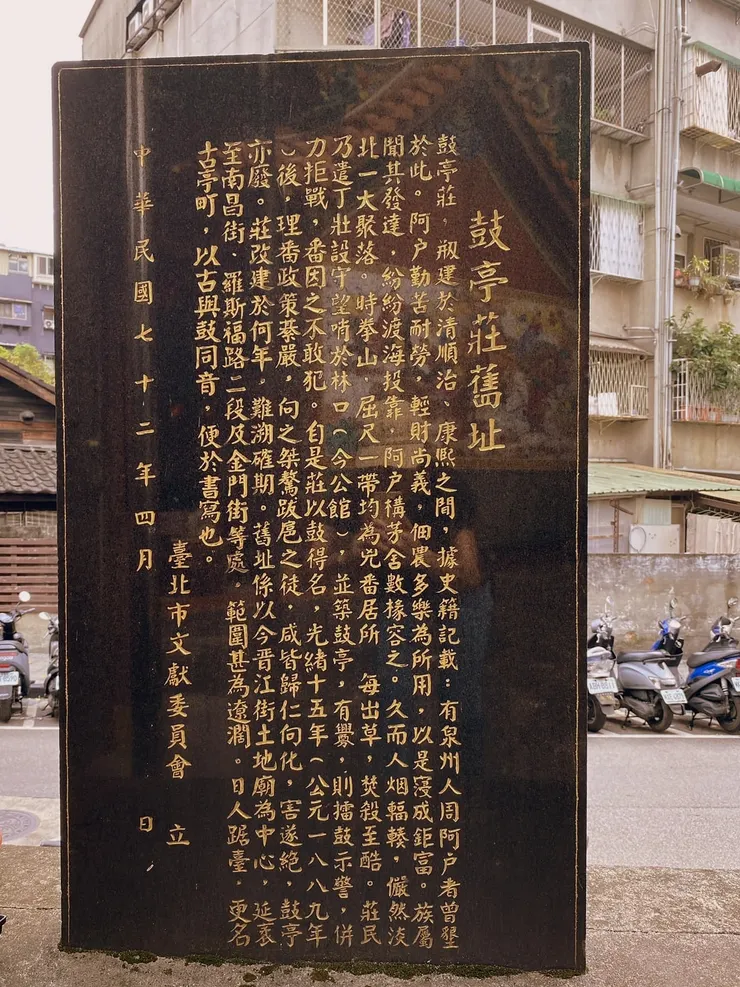 鼓亭莊舊址
鼓亭莊，剏建於清順治、康熙之間，據史籍記載：有泉州人周阿户者曾墾
於此。阿户勤苦耐勞，輕財尚義，佃農多樂為所用，以是寖成鉅富。族屬
聞其發達，紛紛渡海投靠，阿户構茅舍數椽容之。久而人烟輻輳，儼然淡
北一大聚落。時拳山、屈尺一帶均為兇番居所，每出草，焚殺至酷。莊民
乃遣丁壯設守望哨於林口（今公館），並築鼓亭，有釁，則擂鼓示警，併
力拒戰，番因之不敢犯。自是莊以鼓得名，光緒十五年（公元一八八九年
）後，理番政策綦嚴，向之桀驁跋扈之徒，咸皆歸仁向化，害遂絶，鼓亭
亦廢。莊改建於何年。難溯確期。舊址係以今晋江街土地廟為中心，延袤
至南昌街、羅斯福路二段及金門街等處，範圍甚為遼濶。日人踞臺，更名
古亭町，以古與鼓同音，便於書寫也。
臺北市文獻委員會 立
中華民國七十二年四月 日